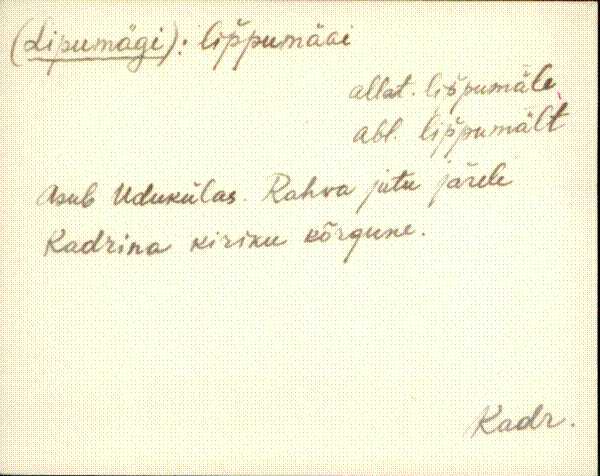 (Lipumägi): lip̆pumäại
allat. lip̆pumäle,
abl. lip̆pumält
Asub Udukülas. Rahva jutu järele
Kadrina kiriku kõrgune.
Kadr.